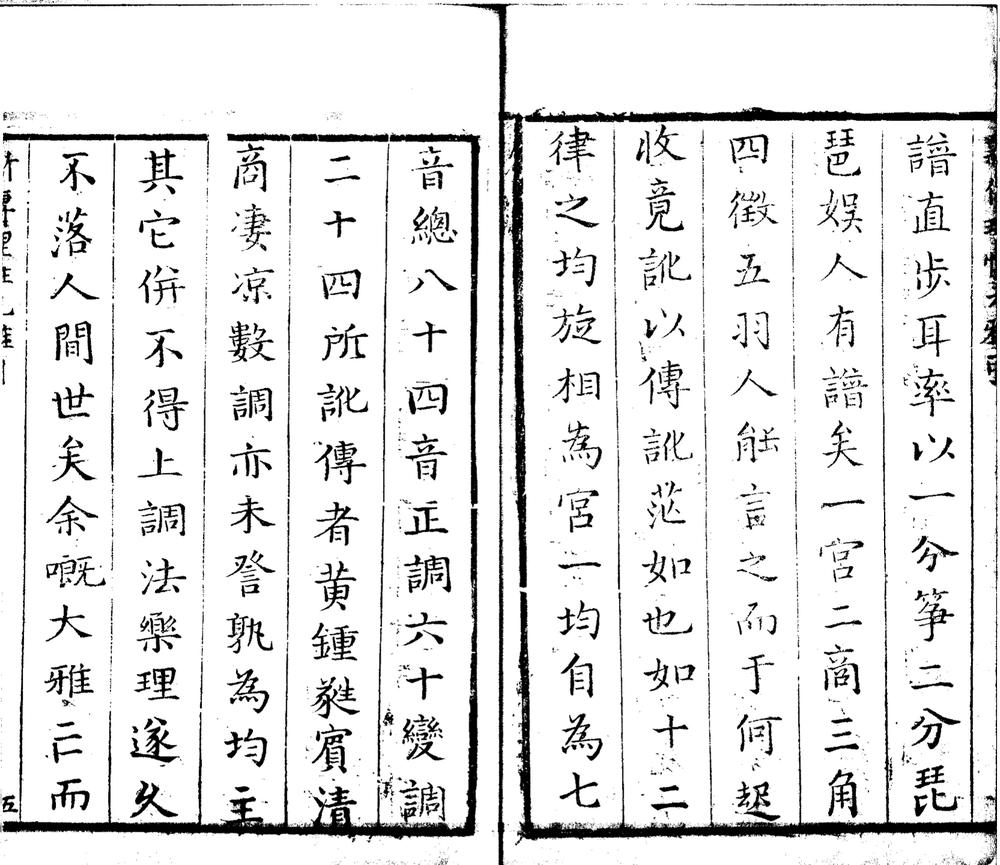 譜直步耳率以一分箏二分琵
琶娛人有譜矣一宮二商三角
四徵五羽人能言之而于何起
收竟訛以傳訛茫如也如十二
律之均旋相為宮一均自為七
音總八十四音正調六十變調
二十四所訛傳者黃鍾蕤賓清
商凄凉數調亦未詧孰為均主
其它併不得上調法樂理遂久
不落人間世矣余嘅大雅云亡而
五